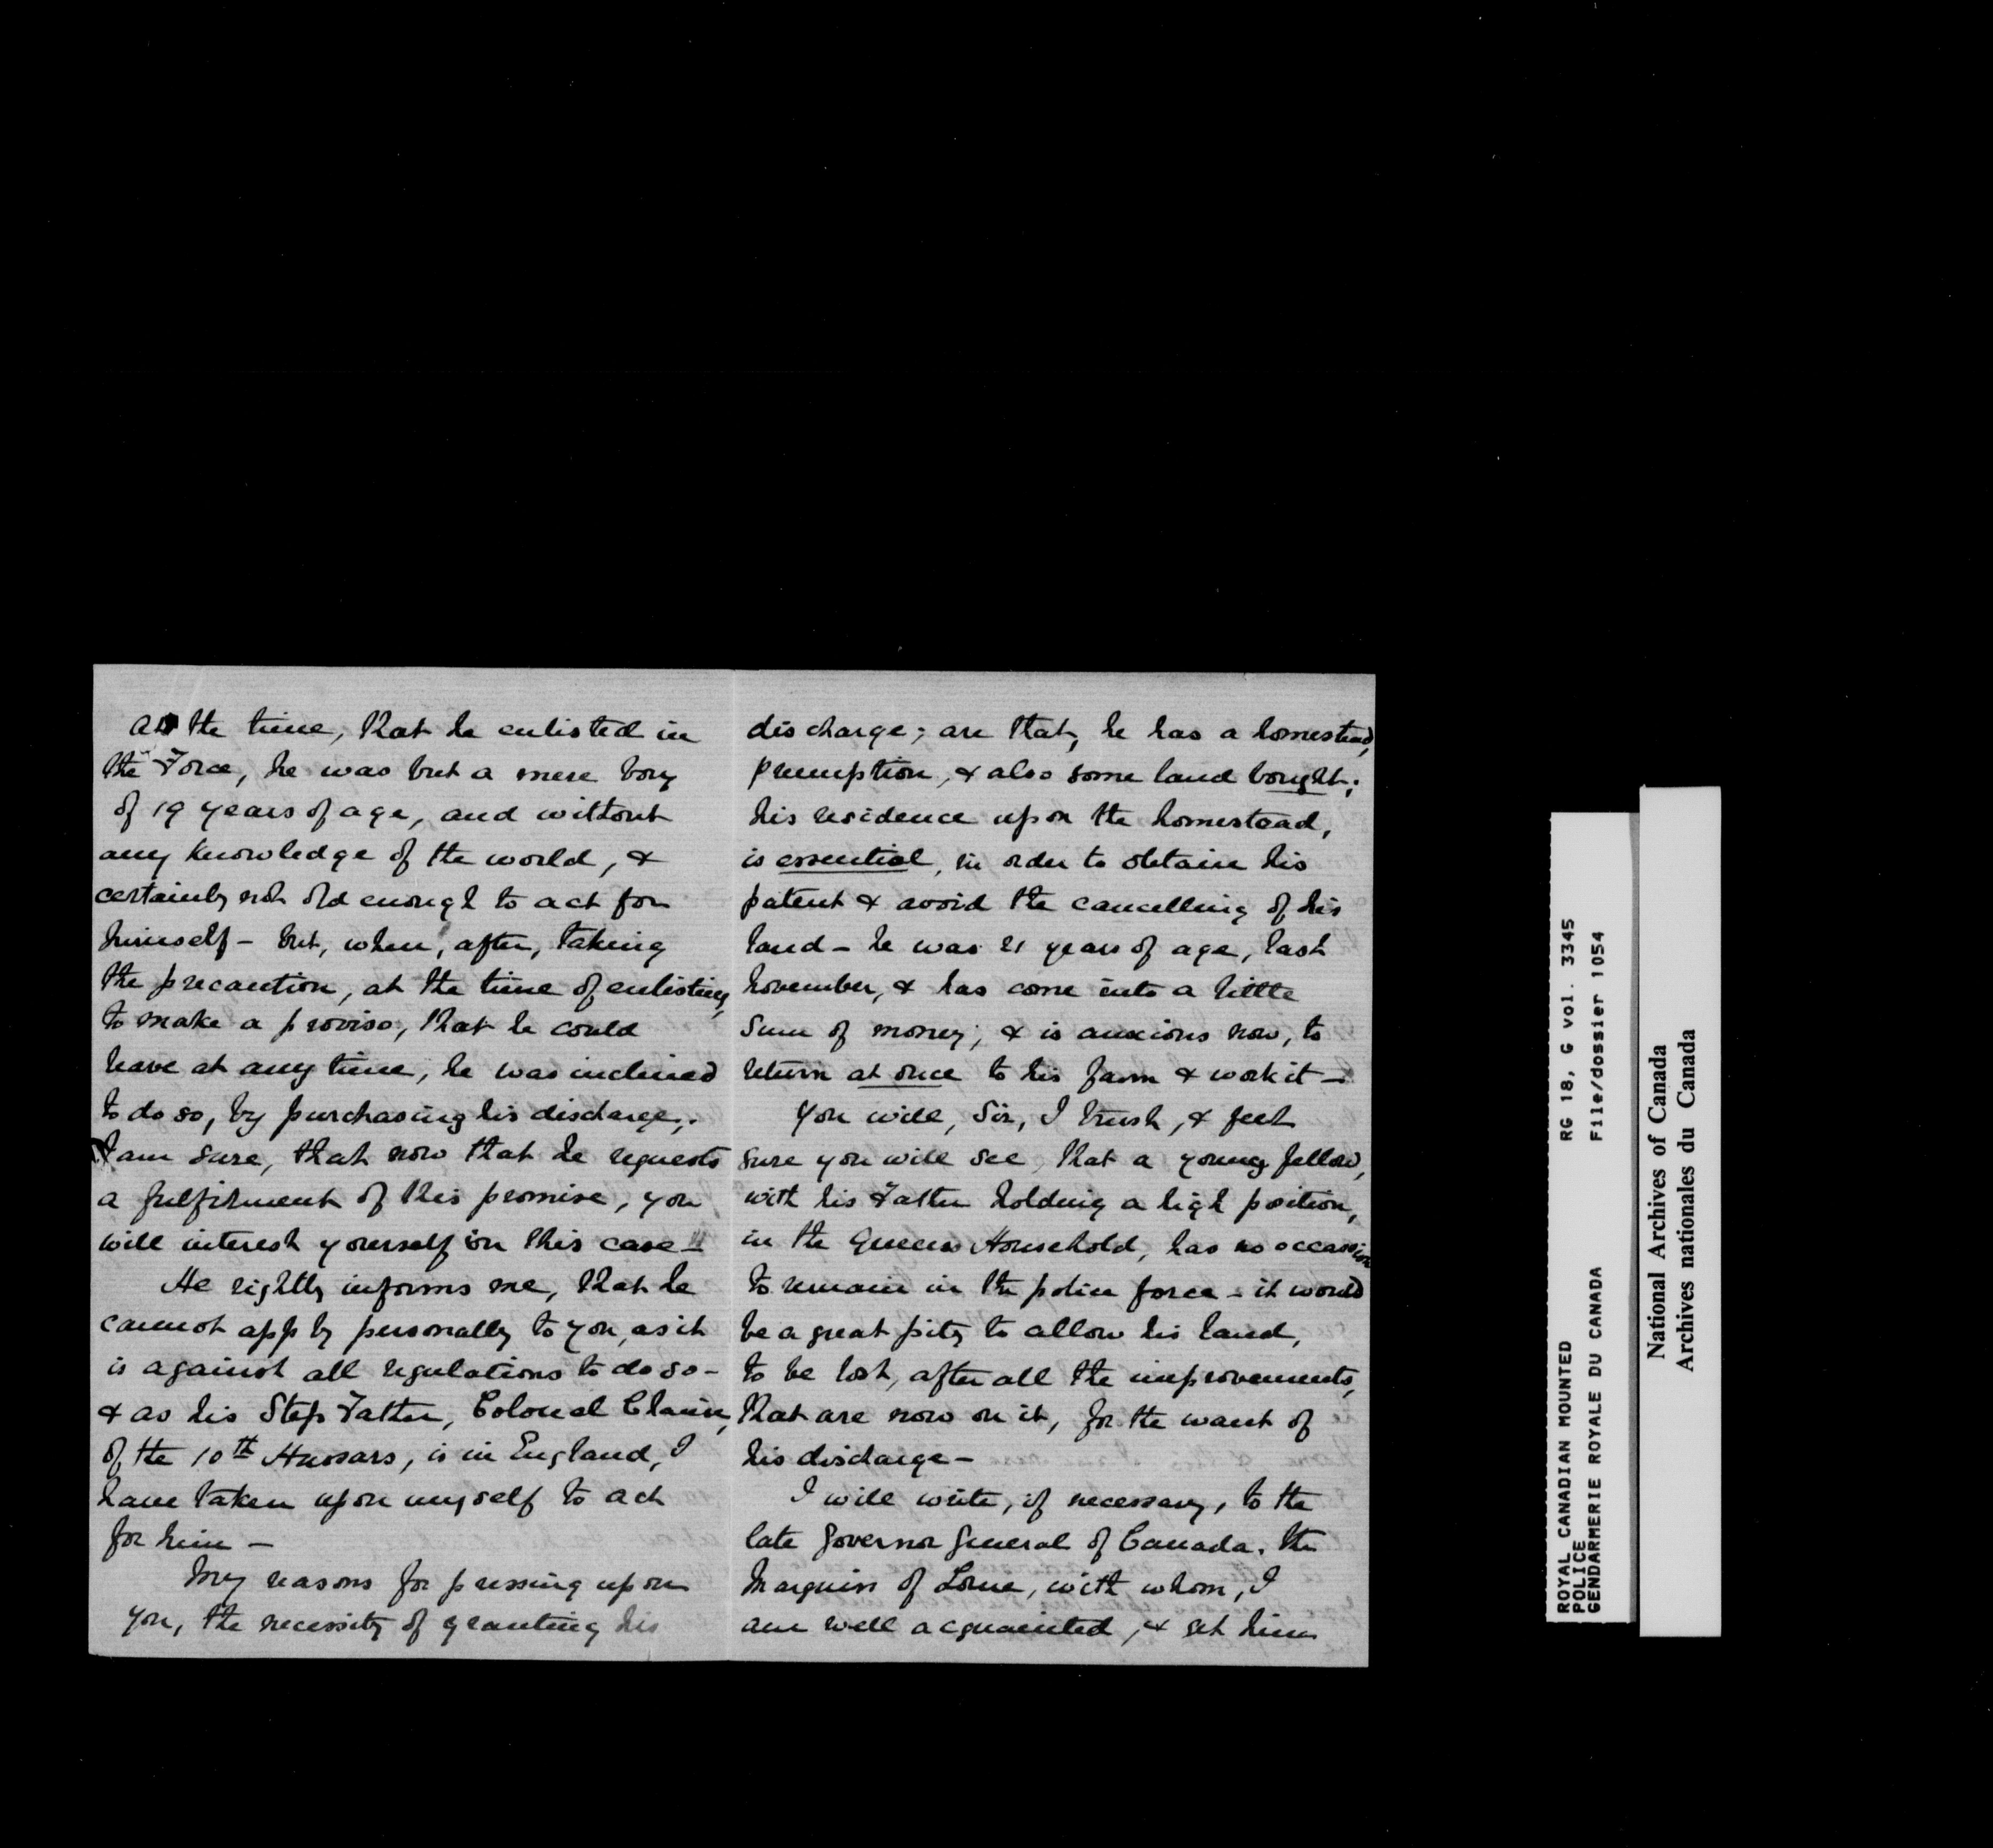 at the time, that he enlisted in
the Force, he was but a mere boy
of 19 years of age, and without
any knowledge of the world, &
certainly not old enough to act for
himself - but, when, after, taking
the precaution, at the time of enlisting,
to make a proviso, that he could
leave at any time, he was inclined
to do so, by purchasing his discharge,.
I am sure, that now that he requests
a fulfilment of this promise, you
will interest yourself in this case -
He rightly informs me, that he
cannot apply personally to you, as it
is against all regulations to do so -
& as his Step Father, Colonel
of the 10th Hussars, is in England, I
have taken upon myself to act
for him -
My reasons for pressing upon
you, the necessity of granting his
discharge; are that, he has a homestead,
premption, & also some land bought;
his residence upon the homestead,
is essential, in order to obtain his
patent & avoid the cancelling of his
land - he was 21 years of age, last
November, & has come into a little
sum of money; & is anxious now, to
return at once to his farm & work it -
You will, Sir, I trust, & feel
sure you will see, that a young fellow,
with his Father holding a high position,
in the Queens Household, has no occassion
to remain in the police force - it would
be a great pity to allow his land,
to be lost, after all the improvements,
that are now on it, for the want of
his discharge -
I will write, if necessary, to the
late Governor General of Canada. the
Marquiss of Lorne, with whom, I
am well acquainted, & get him
ROYAL CANADIAN MOUNTED
POLICE
GENDARMERIE ROYALE DU CANADA
RG 18, G vol. 3345
File/dossier 1054
National Archives of Canada
Archives nationales du Canada